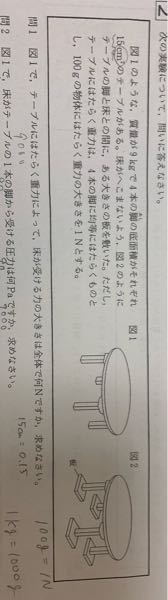 2 次の実験について，問いに答えなさい。
図1のような，質量が9kgで4本の脚の底面積がそれぞれ
15cm²のテーブルがある。床がへこまないよう，図2のように
テーブルの脚と床との間に，ある大きさの板を敷いた。ただし，
テーブルにはたらく重力は，4本の脚に均等にはたらくものと
し，100gの物体にはたらく重力の大きさを1Nとする。
図1
図2
板
問1 図1で，テーブルにはたらく重力によって，床が受ける力の大きさは全体で何Nですか，求めなさい。
100g = 1N
15cm = 0.15
問2 図1で，床がテーブルの1本の脚から受ける圧力は何Paですか，求めなさい。
1kg = 1000g